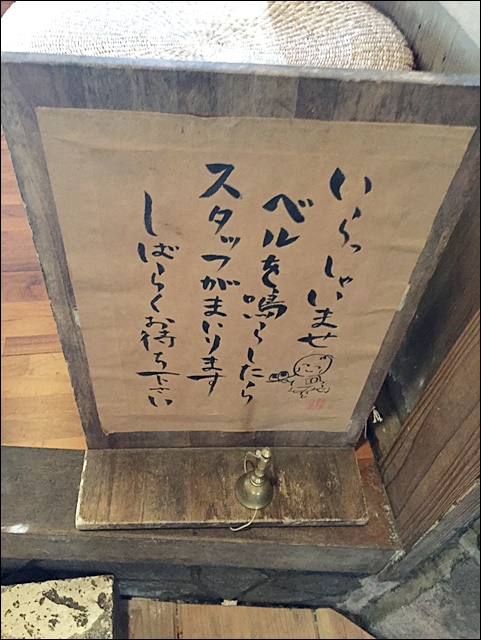 いらっしゃいませ
ベルを鳴らしたら
スタッフがまいります
しばらくお待ち下さい